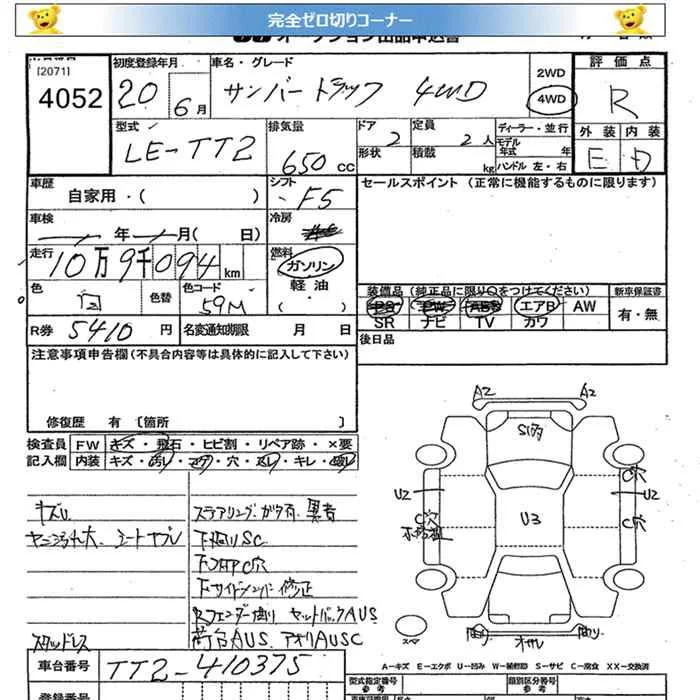 完全ゼロ切りコーナー
オークション出品申込書
[2071]
4052
初度登録年月
20 6月
車名・グレード
サンバートラック 4WD
2WD
4WD
評価点
R
型式
LE-TT2
排気量
650 CC
ドア
2
定員
2人
形状
積載
kg
ディーラー・並行
モデル年式 年
ハンドル 左・右
外装 内装
E D
車歴
自家用・( )
シフト
F5
セールスポイント (正常に機能するものに限ります)
車検
年 月( 日)
冷房
走行
10万9千094km
燃料
ガソリン
軽油
( ・ )
色
白
色替
色コード
59M
装備品 (純正品に限り○をつけてください)
PS PW ABS エアB AW
SR ナビ TV カワ
新車保証書
有・無
R券 5410円
名変通知期限 月 日
後日品
注意事項申告欄(不具合内容等は具体的に記入して下さい)
修復歴 有 〔箇所 〕
検査員
記入欄
FW キズ・飛石・ヒビ割・リペア跡・×要
内装 キズ・汚レ・コゲ・穴・スレ・キレ・破レ
キズU
シートヤブレ
スタッドレス
下廻りSC
下サイドメンバー修正
Rフェンダー曲り
荷台AUS アオリAUSC
A2 A2
U2 U2
U3
C穴
C穴
C穴
スペ
曲り
曲り
A=キズ E=エクボ U=凹み W=補修跡 S=サビ C=腐食 XX=交換済
車台番号
TT2-410375
登録番号
型式指定番号
参考
類別区分番号
参考